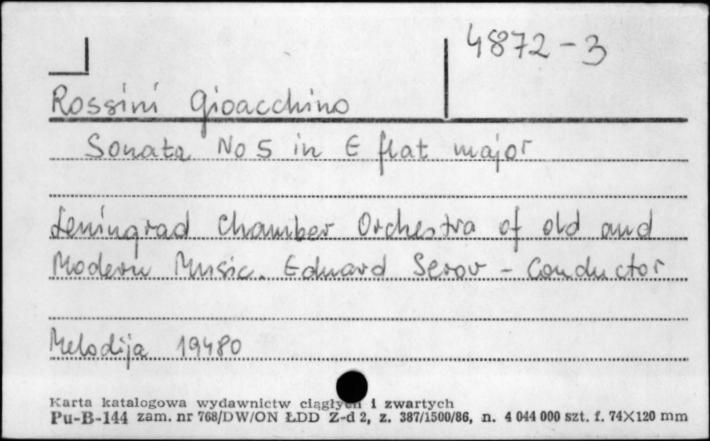 4872-3
Rossini Gioacchino
Sonata No 5 in E flat major
Leningrad Chamber Orchestra of old and
Modern Music. Eduard Serov - Conductor
Melodija 19480
Karta katalogowa wydawnictw ciągłych i zwartych
Pu-B-144 zam. nr 768/DW/ON ŁDD Z-d 2, z. 387/1500/86, n. 4 044 000 szt. f. 74X120 mm